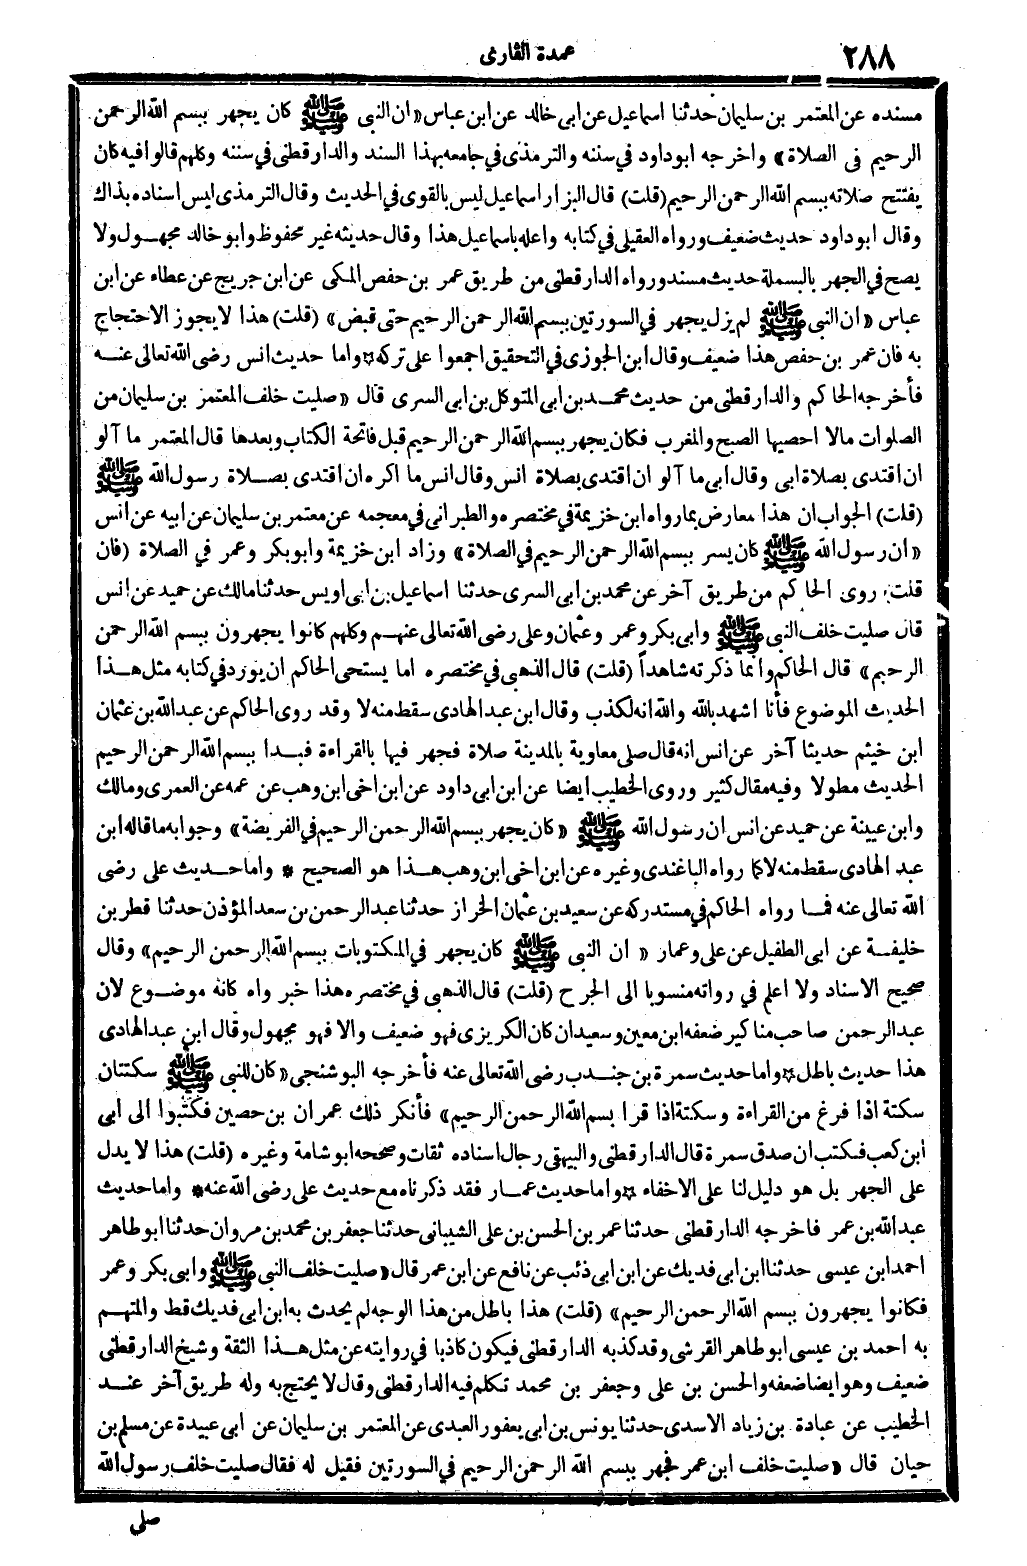 ٢٨٨
عمدة القارئ
مسنده عن المعتمر بن سليمان حدثنا اسماعيل عن ابى خالد عن ابن عباس «ان النبى ﷺ كان يجهر ببسم الله الرحمن
الرحيم فى الصلاة» واخرجه ابوداود فى سننه والترمذى فى جامعه بهذا السند والدارقطنى فى سننه وكلهم قالوا فيه كان
يفتتح صلاته ببسم الله الرحمن الرحيم (قلت) قال البزار اسماعيل ليس بالقوى فى الحديث وقال الترمذى ليس اسناده بذاك
وقال ابوداود حديث ضعيف ورواه العقيلى فى كتابه واعله باسماعيل هذا وقال حديثه غير محفوظ وابو خالد مجهول ولا
يصح فى الجهر بالبسملة حديث مسند ورواه الدارقطنى من طريق عمر بن حفص المكى عن ابن جريج عن عطاء عن ابن
عباس «ان النبى ﷺ لم يزل يجهر فى السورتين ببسم الله الرحمن الرحيم حتى قبض» (قلت) هذا لا يجوز الاحتجاج
به فان عمر بن حفص هذا ضعيف وقال ابن الجوزى فى التحقيق اجمعوا على تركه * واما حديث انس رضى الله تعالى عنه
فأخرجه الحاكم والدارقطنى من حديث محمد بن ابى المتوكل بن ابى السرى قال «صليت خلف المعتمز بن سليمان من
الصلوات مالا احصيها الصبح والمغرب فكان يجهر ببسم الله الرحمن الرحيم قبل فاتحة الكتاب وبعدها قال المعتمر ما آلو
ان اقتدى بصلاة ابى وقال ابى ما آلو ان اقتدى بصلاة انس وقال انس ما اكره ان اقتدى بصلاة رسول الله ﷺ
(قلت) الجواب ان هذا معارض بما رواه ابن خزيمة فى مختصره والطبرانى فى معجمه عن معتمر بن سليمان عن ابيه عن انس
«أن رسول الله ﷺ كان يسر ببسم الله الرحمن الرحيم فى الصلاة» وزاد ابن خزيمة وابوبكر وعمر في الصلاة (فان
قلت) روى الحاكم من طريق آخر عن محمد بن ابى السرى حدثنا اسماعيل بن ابى اويس حدثنا مالك عن حميد عن انس
قال صليت خلف النبى ﷺ وابى بكر وعمر وعثمان وعلى رضى الله تعالى عنهم وكلهم كانوا يجهرون ببسم الله الرحمن
الرحيم» قال الحاكم وانما ذكرته شاهداً (قلت) قال الذهبى فى مختصره اما يستحى الحاكم ان يورد فى كتابه مثل هذا
الحديث الموضوع فأنا اشهد بالله والله انه لكذب وقال ابن عبد الهادى سقط منه لا وقد روى الحاكم عن عبدالله بن عثمان
ابن خيثم حديثا آخر عن انس انه قال صلى معاوية بالمدينة صلاة فجهر فيها بالقراءة فبدا ببسم الله الرحمن الرحيم
الحديث مطولا وفيه مقال كثير وروى الخطيب ايضا عن ابن ابى داود عن ابن اخى ابن وهب عن عمه عن العمرى ومالك
وابن عيينة عن حميد عن انس ان رسول الله ﷺ «كان يجهر ببسم الله الرحمن الرحيم فى الفريضة» وجوابه ما قاله ابن
عبد الهادى سقط منه لا كما رواه الباغندى وغيره عن ابن اخى ابن وهب هذا هو الصحيح * واما حديث على رضى
الله تعالى عنه فما رواه الحاكم فى مستدركه عن سعيد بن عثمان الخراز حدثنا عبد الرحمن بن سعد المؤذن حدثنا قطر بن
خليفة عن ابى الطفيل عن على وعمار « ان النبى ﷺ كان يجهر في المكتوبات ببسم الله الرحمن الرحيم» وقال
صحيح الاسناد ولا اعلم في رواته منسوبا الى الجرح (قلت) قال الذهبى فى مختصره هذا خبر واه كانه موضوع لان
عبد الرحمن صاحب مناكير ضعفه ابن معين وسعيد ان كان الكريزى فهو ضعيف والا فهو مجهول وقال ابن عبد الهادى
هذا حديث باطل * واما حديث سمرة بن جندب رضى الله تعالى عنه فأخرجه البوشنجى «كان للنبى ﷺ سكتتان
سكتة اذا فرغ من القراءة وسكتة اذا قرا بسم الله الرحمن الرحيم» فأنكر ذلك عمران بن حصين فكتبوا الى ابى
ابن كعب فكتب ان صدق سمرة قال الدارقطنى والبيهقى رجال اسناده ثقات وصححه ابو شامة وغيره (قلت) هذا لا يدل
على الجهر بل هو دليل لنا على الاخفاء * واما حديث عمار فقد ذكرناه مع حديث على رضى الله عنه * واما حديث
عبدالله بن عمر فاخرجه الدارقطنى حدثنا عمر بن الحسن بن على الشيبانى حدثنا جعفر بن محمد بن مروان حدثنا ابو طاهر
احمد ابن عيسى حدثنا ابن ابى فديك عن ابن ابى ذئب عن نافع عن ابن عمر قال «صليت خلف النبى ﷺ وابى بكر وعمر
فكانوا يجهرون ببسم الله الرحمن الرحيم» (قلت) هذا باطل من هذا الوجه لم يحدث به ابن ابى فديك قط والمتهم
به احمد بن عيسى ابو طاهر القرشى وقد كذبه الدارقطنى فيكون كاذبا في روايته عن مثل هذا الثقة وشيخ الدارقطنى
ضعيف وهو ايضا ضعفه والحسن بن على وجعفر بن محمد تكلم فيه الدارقطنى وقال لا يحتج به وله طريق آخر عند
الخطيب عن عبادة بن زياد الاسدى حدثنا يونس بن ابى يعفور العبدى عن المعتمر بن سليمان عن ابى عبيدة عن مسلم بن
حيان قال «صليت خلف ابن عمر فجهر ببسم الله الرحمن الرحيم في السورتين فقيل له فقال صليت خلف رسول الله
صلى